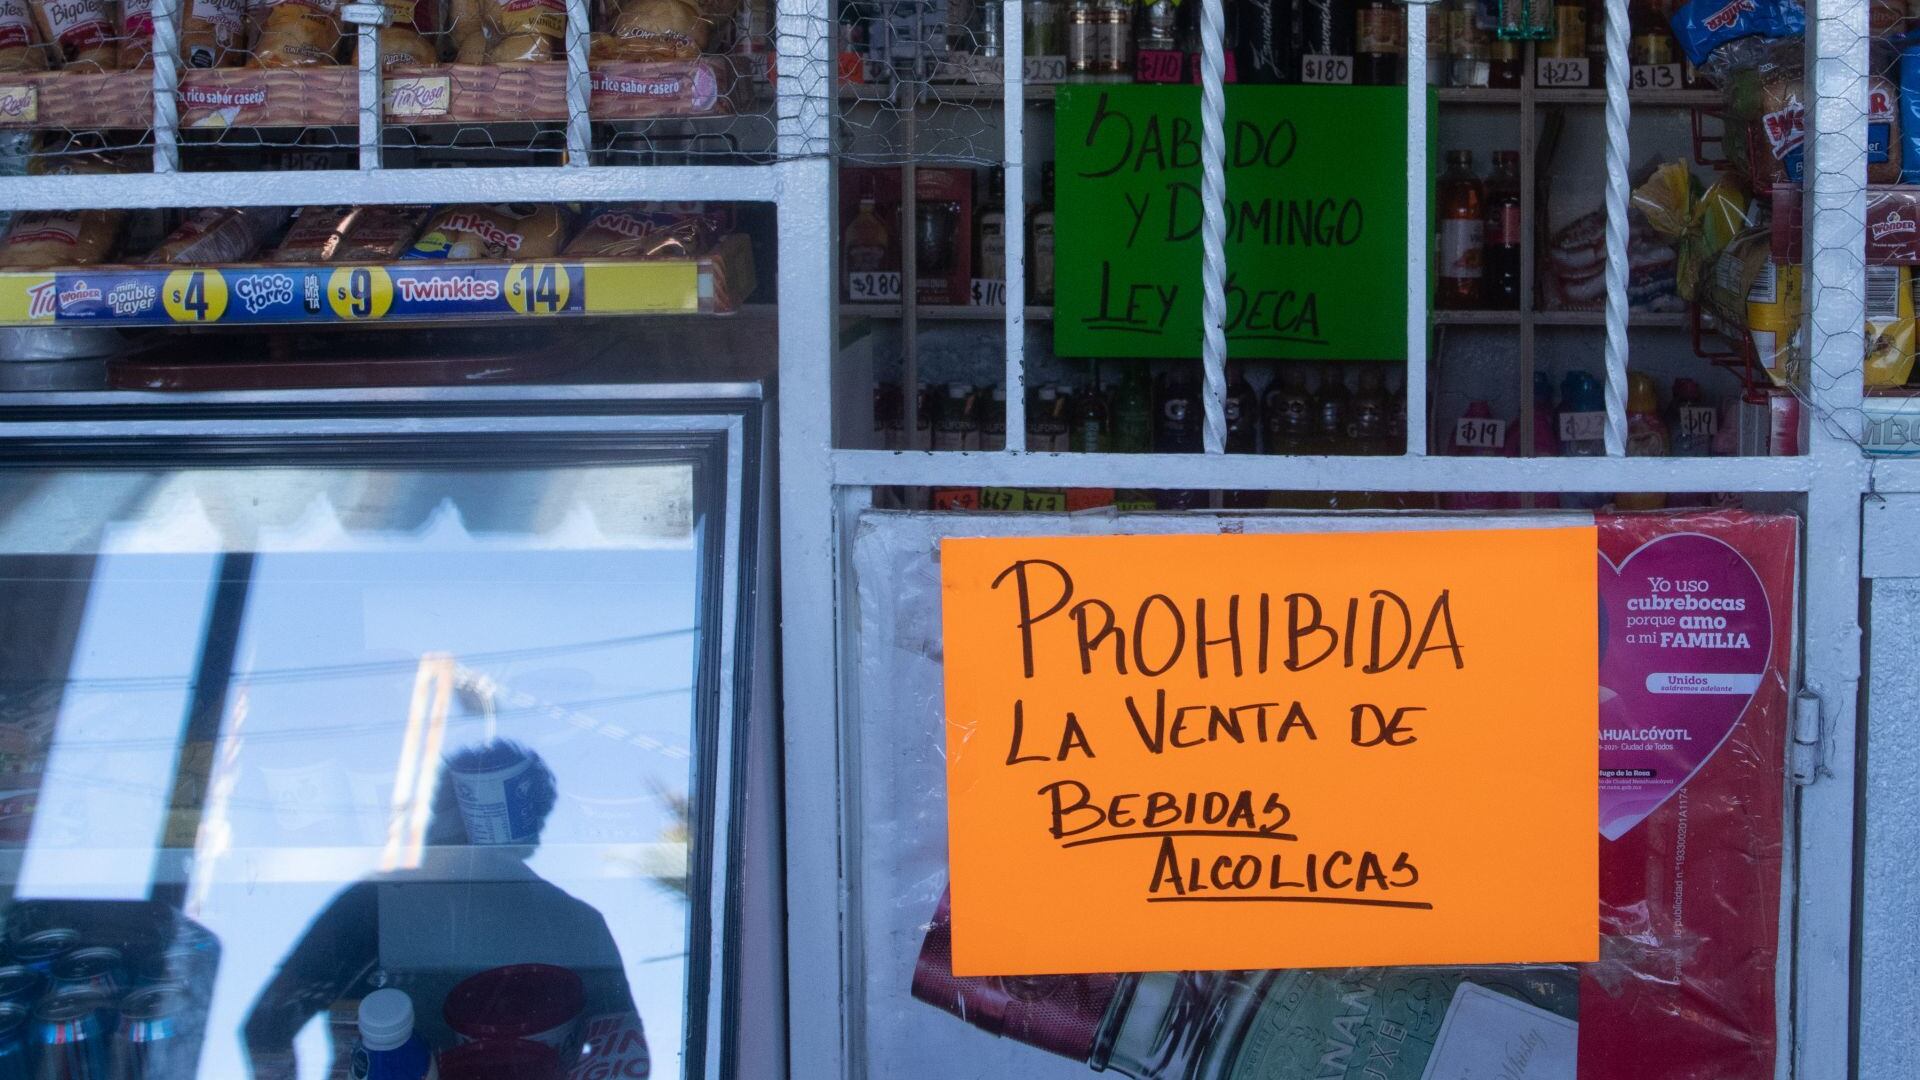 Bigotes
Tía Rosa
su rico sabor casero
Tía Rosa
su rico sabor casero
$250
$110
$180
$23
$13
SABADO
Y DOMINGO
LEY SECA
WONDER
$280
$110
Twinkies
Tía
WONDER
mini
Double
Layer
$4
Choco
torro
DÁLMATA
$9
Twinkies
$14
CALIFORNIA
$19
$19
PROHIBIDA
LA VENTA DE
BEBIDAS
ALCOLICAS
Yo uso
cubrebocas
porque amo
a mi FAMILIA
Unidos
saldremos adelante
AHUALCÓYOTL
Ciudad de Todos
Hugo de la Rosa
Whisky